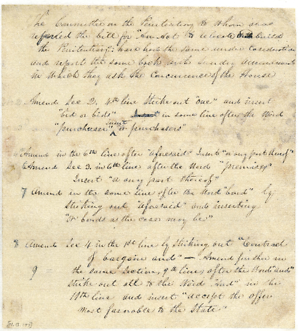 The Committee on the Penitentiary to whom was
referred the bill for "An Act to relocate & build
the Penitentiary" have had the same under consideration
and report the same back with sundry amendments
in which they ask the concurrence of the House
Amend Sec 2. 4th line Strike out "one" and insert
"bid or bids" Insert in same line after the word
"purchaser" "or purchasers"
Amend in the 6th line after "aforesaid" Insert "or any part thereof"
Amend Sec 3. in 6th line after the word "premises"
Insert "or any part thereof"
7 Amend in the same line after the word "bond" by
Striking out "aforesaid" and inserting
"or bonds as the case may be"
8 Amend Sec 4 in the 1st line by Striking out "Contract
of bargain and" — Amend further in
9 the same Section, 9th line after the word "and"
Strike out all to the word "and" in the
11th line and insert "accept the offer
most favorable to the State"